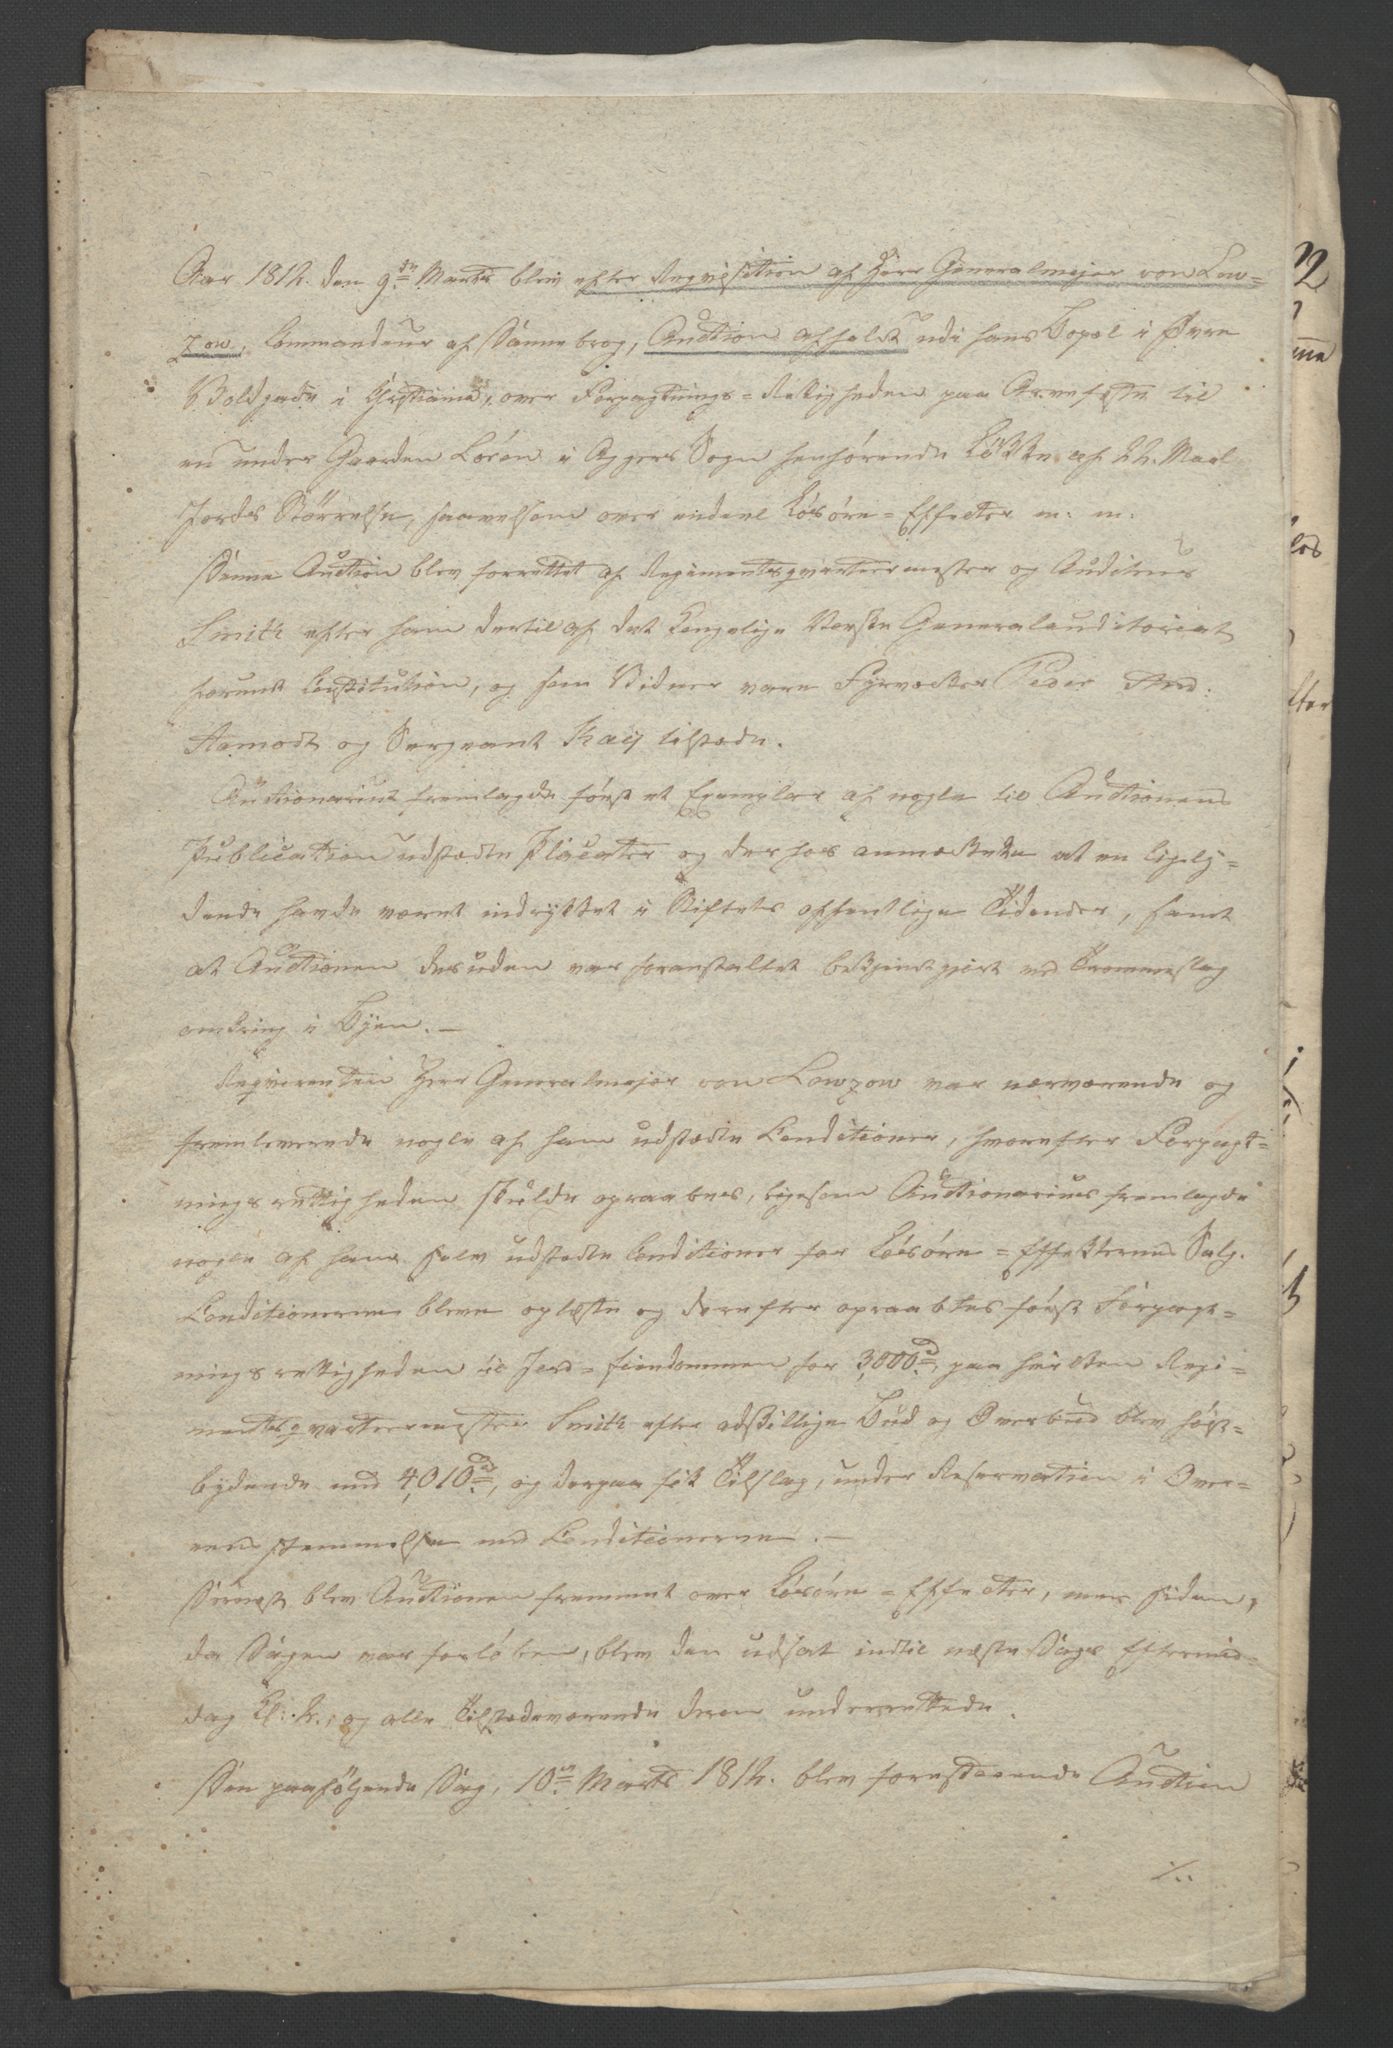 Aar 1812. den 9de Marts blev efter Reqvisition af Herr Generalmajor von Low=
zow, Commandeur af Dannebrog, Auction afholdt udi hans Bopæl i Øvre
Voldgade i Christiania, over Forpagtnings=Rettigheden paa Arvefæste til
en under Gaarden Lören i Aggers Sogn henhörende Lökke af 22. Maal
Jords Störrelse, saavelsom over endeel Lösöre=Effecter m: m:
Denne Auction blev forrettet af Regimentsqvarteermester og Auditeur
Smith efter ham dertil af det Kongelige Norske Generalauditoriat
forundt Constitution, og som Vidner vare Fyrværker Peder And:
Aamodt og Sergeant Kaij tilstæde.
Auctionarius fremlagde först et Exemplar af nogle til Auctionens
Publication udstædte Placater og derhos anmærkede at en ligely=
dende havde været indrykket i Stiftets offentlige Tidender, samt
at Auctionen desuden var foranstaltet bekjendtgjort ved Trommeslag
omkring i Byen. —
Reqvirenten Herr Generalmajor von Lowzow var nærværende og
fremleverede nogle af ham udstædte Conditioner, hvorefter Forpagt=
ningsrettigheden skulde opraabes, ligesom Auctionarius fremlagde
nogle af ham selv udstædte Conditioner for Lösöre=Effecternes Salg.
Conditionerne bleve oplæste og derefter opraabtes först Forpagt=
ningsrettigheden til Jord=Eiendommen for 3,000rd, paa hvilken Regi=
mentsqvarteermester Smith efter adskillige Bud og Overbud blev höist=
bydende med 4,010rd, og derpaa fik Tilslag, under Reservation i Over=
eensstemmelse med Conditionerne. —
Dernæst blev Auctionen fremmet over Lösöre=Effecter, men siden,
da Dagen var forlöben, blev den udsat indtil næste Dags Eftermid=
dag Kl: 2., og alle Tilstædeværende derom underrettede.
Den paafölgende Dag, 10de Marts 1812. blev forestaaende Auction
./..